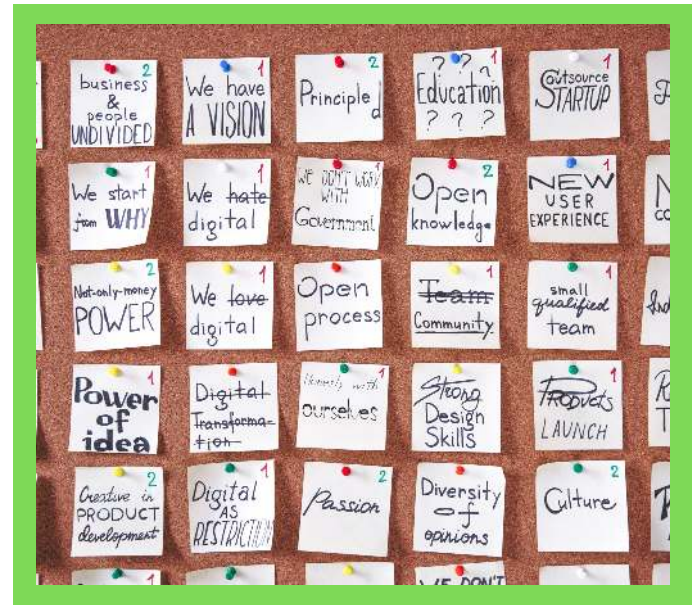 business
&
people
UNDIVIDED
2
We have
A VISION
1
Principled
2
? ? ?
Education
? ? ?
1
Outsource
STARTUP
1
We start
from WHY
1
We hate
digital
1
WE DON'T WORK
WITH
Government
1
Open
knowledge
2
NEW
USER
EXPERIENCE
1
Not-only-money
POWER
2
We love
digital
1
Open
process
Team
Community
1
small
qualified
team
1
Power
of
idea
1
Digital
Transforma-
tion
Honesty with
ourselves
1
Strong
Design
Skills
Products
LAUNCH
1
Creative in
PRODUCT
development
2
Digital
AS
RESTRICTION
1
Passion
2
Diversity
of
opinions
Culture
2
1
1
WE DON'T